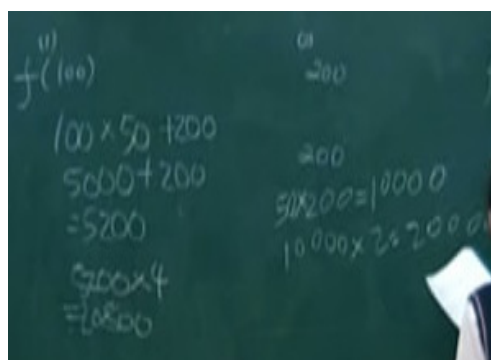 (1)
f(100)
100×50+200
5000+200
=5200
5200×4
=20800
(2)
200
200
50×200=10000
10000×2=2000